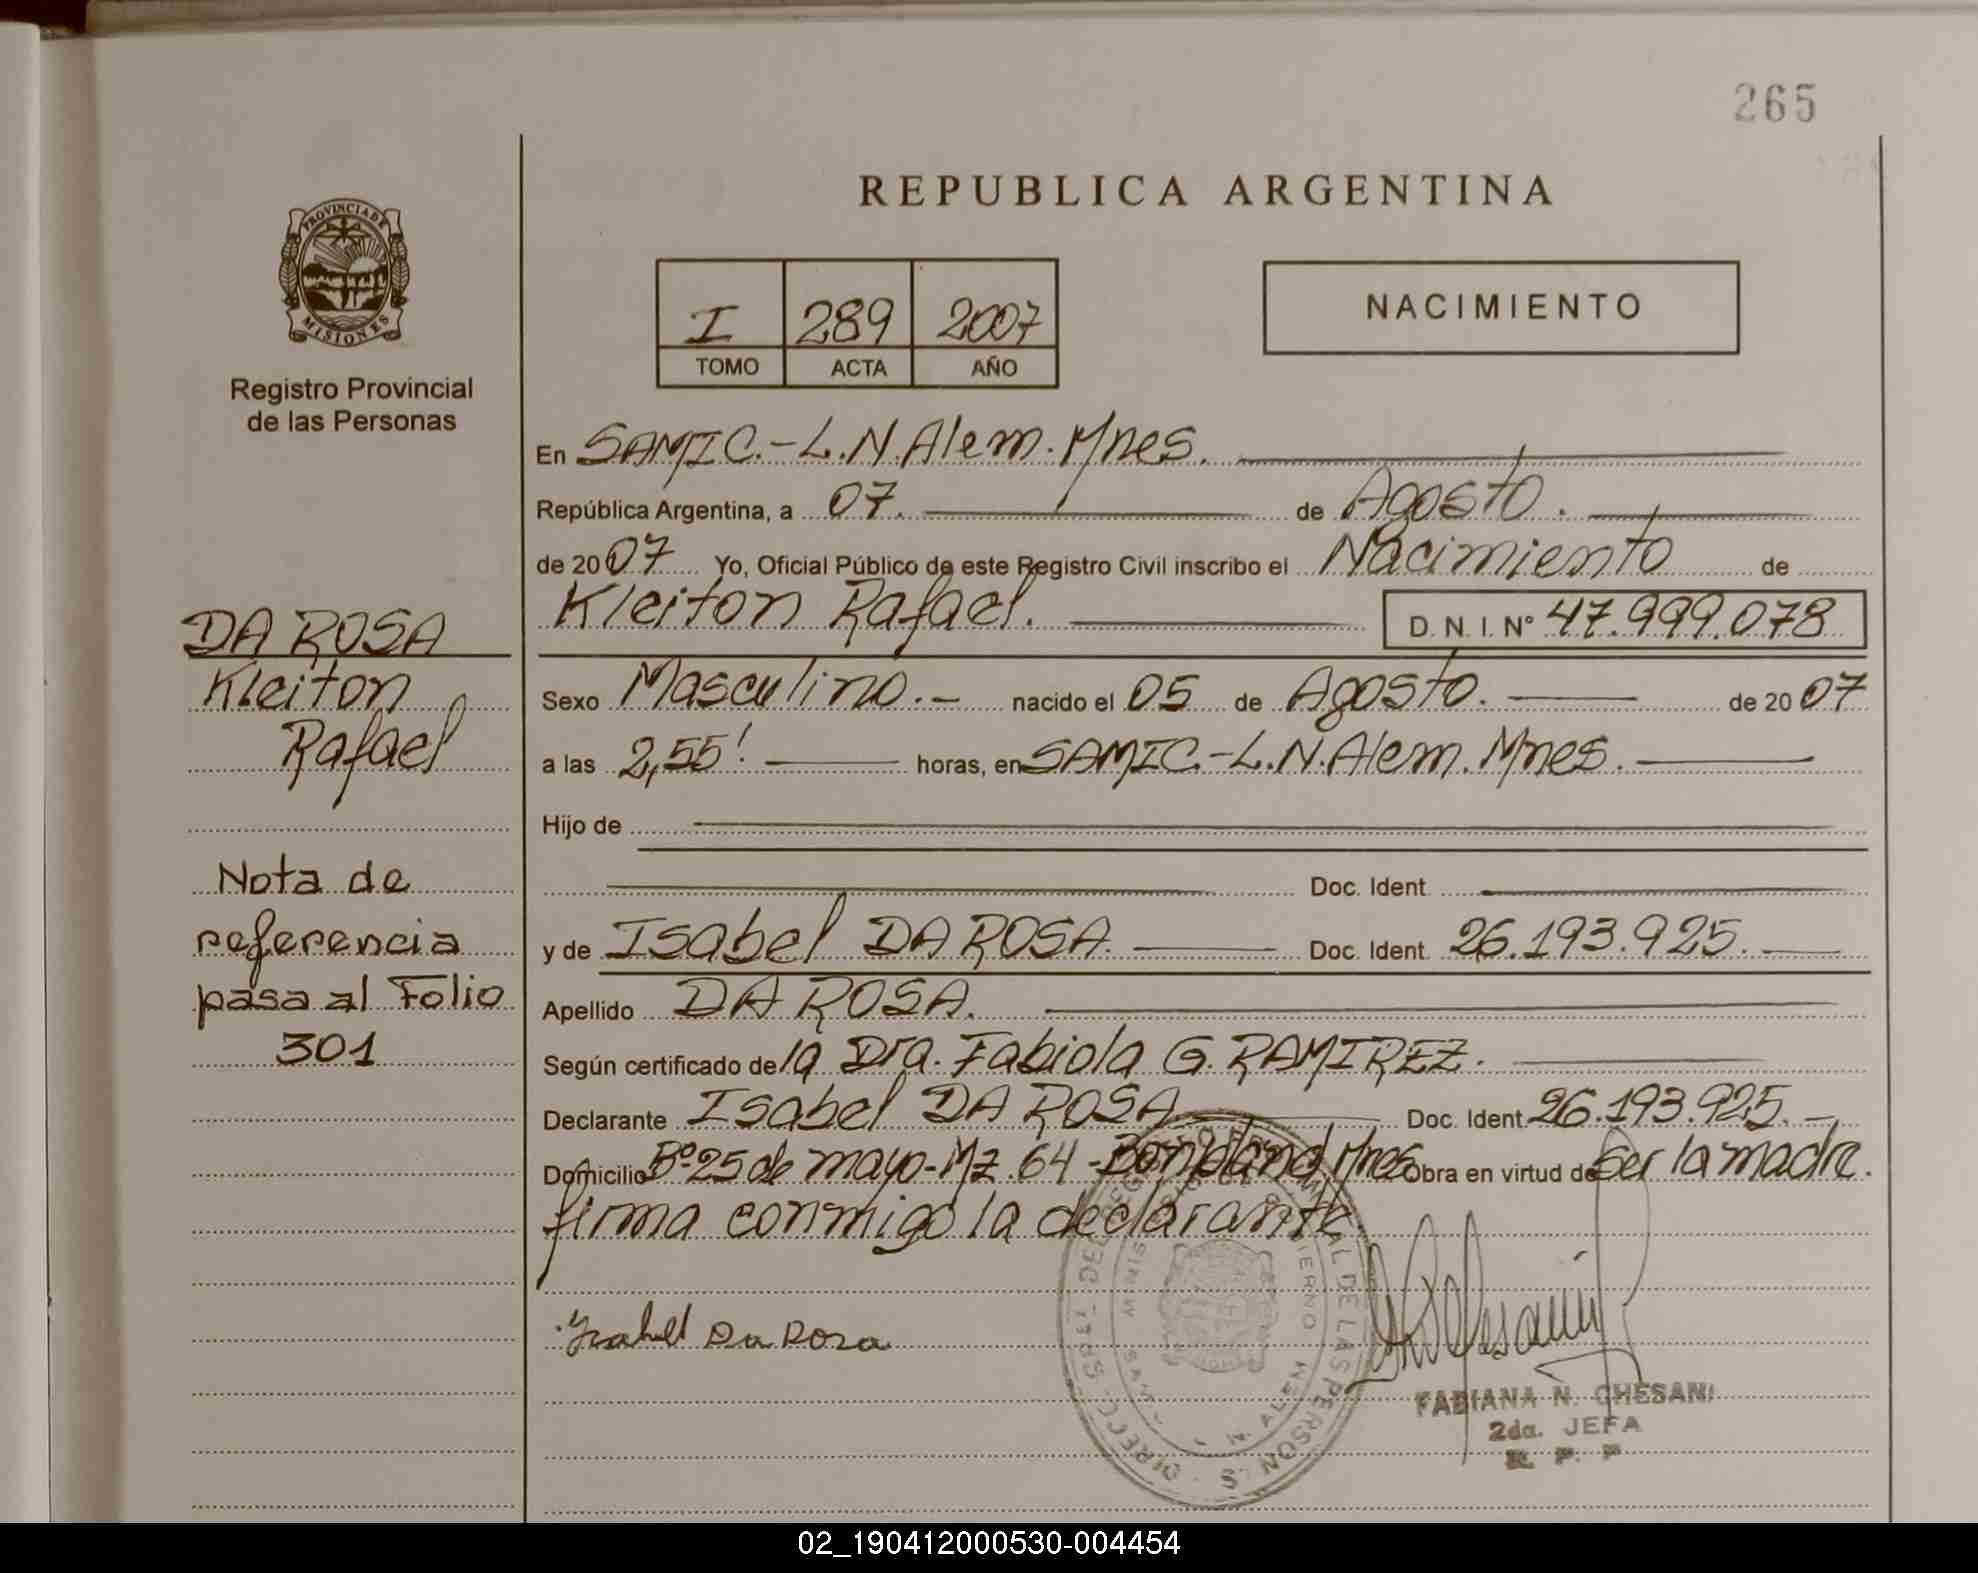 265
REPUBLICA ARGENTINA
PROVINCIA DE
MISIONES
Registro Provincial
de las Personas
I 289 2007
TOMO ACTA AÑO
NACIMIENTO
En SAMIC.-L.N.Alem.Mnes.
República Argentina, a 07. de Agosto.
de 2007 Yo, Oficial Público de este Registro Civil inscribo el Nacimiento de
Kleiton Rafael. D.N.I.Nº 47.999.078
DA ROSA
Kleiton
Rafael
Sexo Masculino.- nacido el 05 de Agosto. de 2007
a las 2,55' horas, en SAMIC.-L.N.Alem.Mnes.
Hijo de
Doc. Ident.
y de Isabel DA ROSA. Doc. Ident. 26.193.925.
Apellido DA ROSA.
Según certificado de la Dra. Fabiola G. RAMIREZ.
Declarante Isabel DA ROSA Doc. Ident. 26.193.925.-
Domicilio Bº 25 de mayo-Mz.64-Bonpland Mnes Obra en virtud de Ser la madre.
firma conmigo la declarante.
Nota de
referencia
pasa al Folio
301
Isabel Da Rosa
FABIANA N. CHESANI
2da. JEFA
R. P. P
02_190412000530-004454